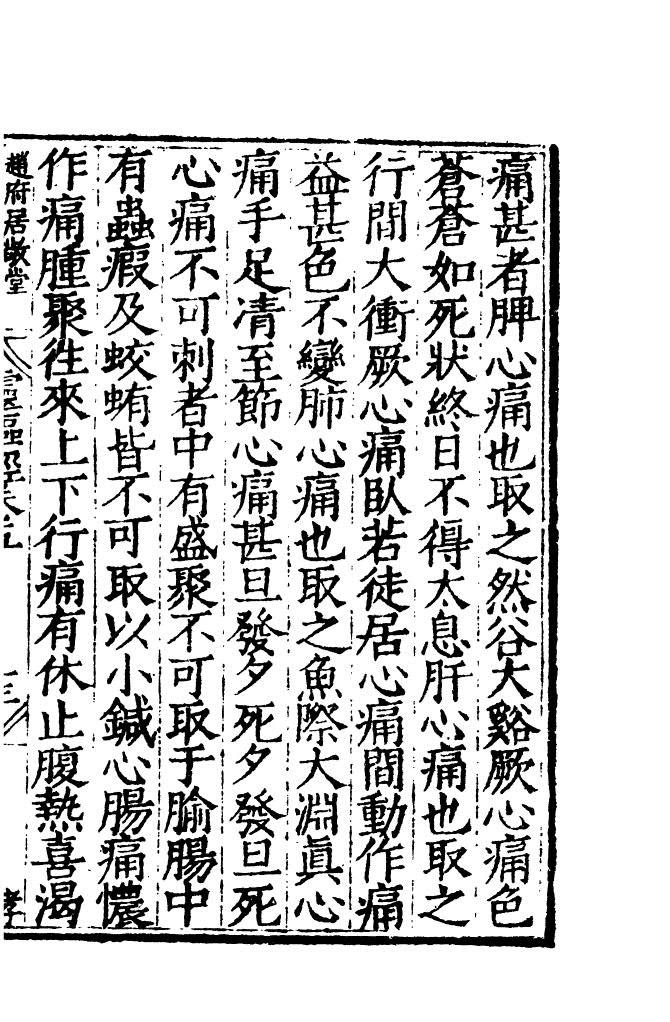 痛甚者脾心痛也取之然谷大谿厥心痛色
蒼蒼如死狀終日不得太息肝心痛也取之
行間大衝厥心痛臥若徒居心痛間動作痛
益甚色不變肺心痛也取之魚際大淵真心
痛手足凊至節心痛甚旦發夕死夕發旦死
心痛不可刺者中有盛聚不可取于腧腸中
有蟲瘕及蛟蛕皆不可取以小鍼心腸痛憹
作痛腫聚徃來上下行痛有休止腹熱喜渴
趙府居敬堂